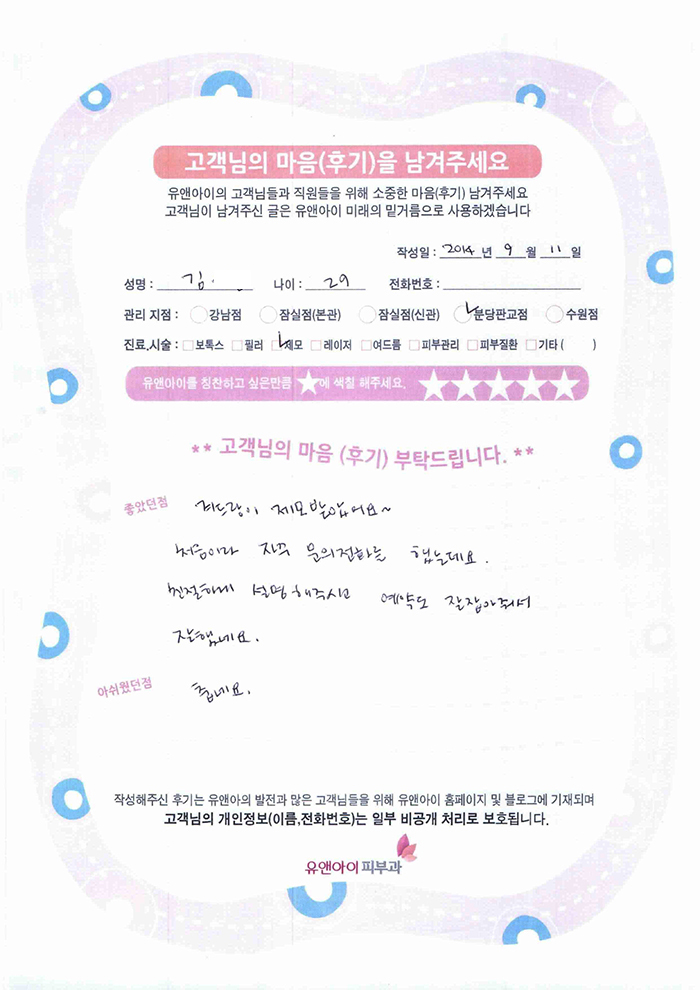 고객님의 마음(후기)을 남겨주세요
유앤아이의 고객님들과 직원들을 위해 소중한 마음(후기) 남겨주세요
고객님이 남겨주신 글은 유앤아이 미래의 밑거름으로 사용하겠습니다
작성일 : 2014 년 9 월 11 일
성명 : 김. 나이 : 29 전화번호 :
관리 지점 : 강남점 잠실점(본관) 잠실점(신관) 분당판교점 수원점
진료.시술 : 보톡스 필러 제모 레이저 여드름 피부관리 피부질환 기타 ( )
유앤아이를 칭찬하고 싶은만큼 ★에 색칠 해주세요. ★★★★★
** 고객님의 마음 (후기) 부탁드립니다. **
좋았던점 겨드랑이 제모받았어요~
처음이라 자꾸 문의전화를 했는데요.
친절하게 설명해주시고 예약도 잘잡아주셔서
잘했네요.
아쉬웠던점 춥네요.
작성해주신 후기는 유앤아의 발전과 많은 고객님들을 위해 유앤아이 홈페이지 및 블로그에 기재되며
고객님의 개인정보(이름,전화번호)는 일부 비공개 처리로 보호됩니다.
유앤아이피부과